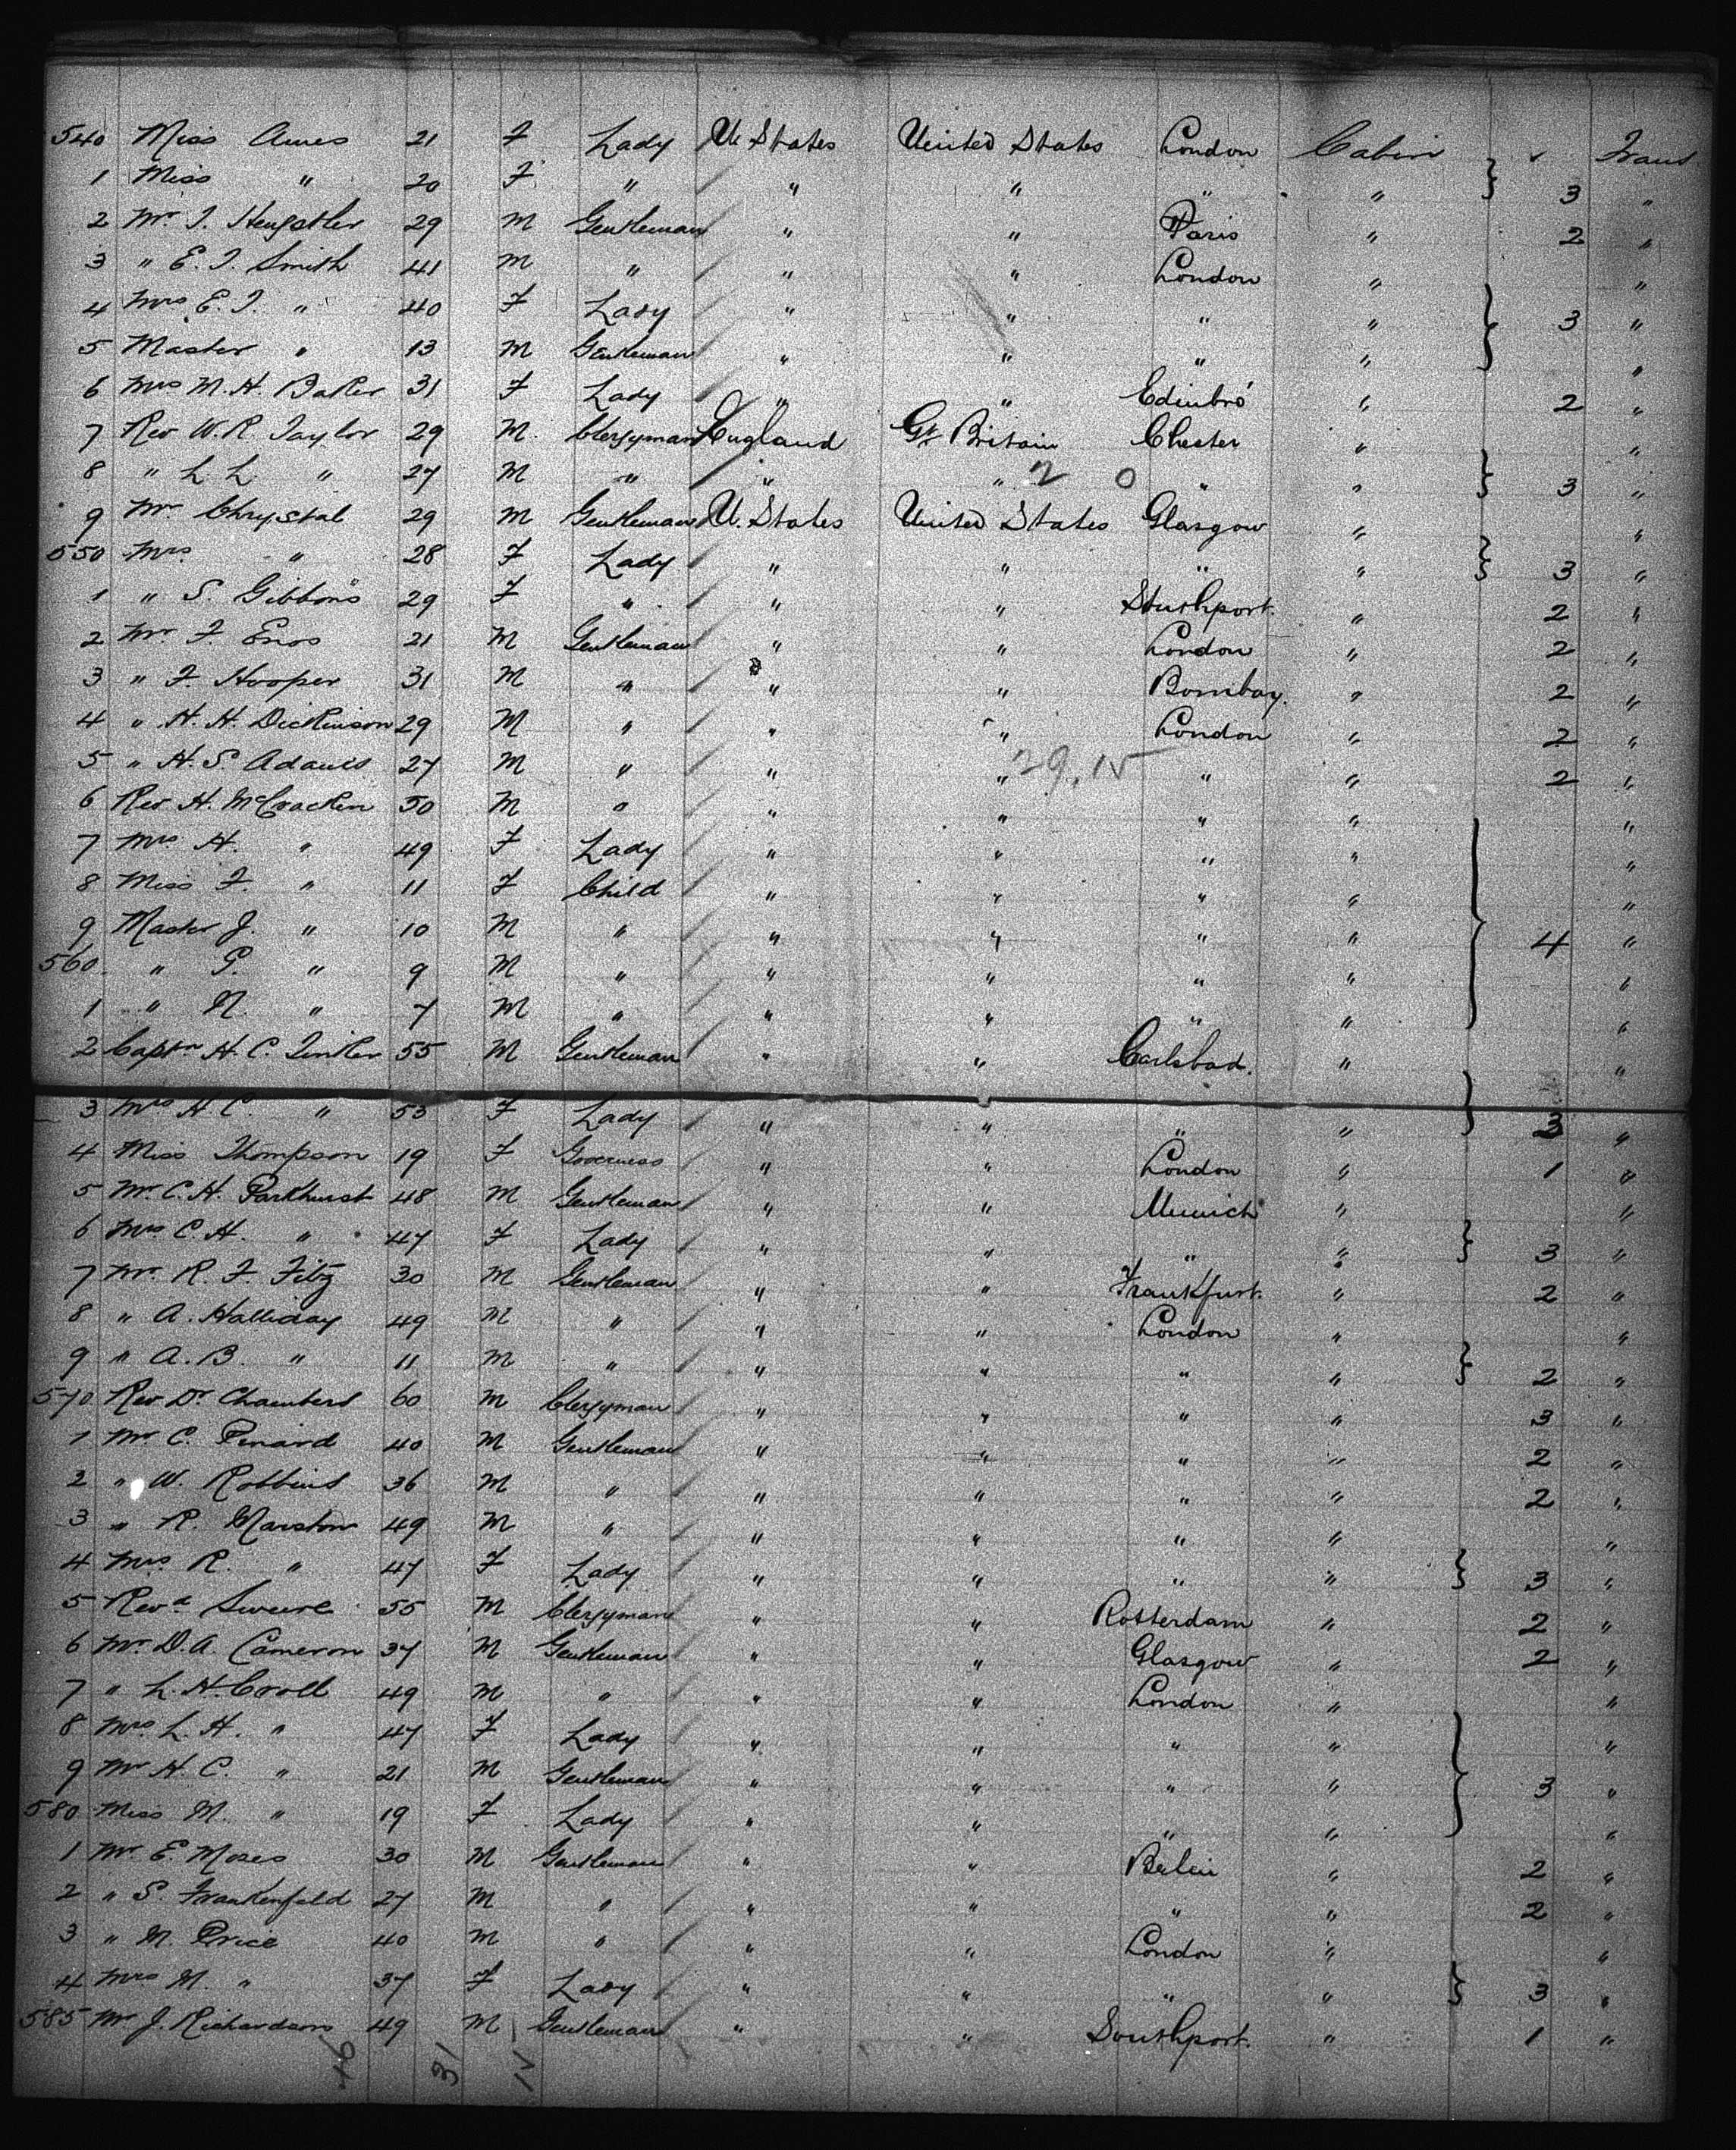 540 Miss Ames 21 F Lady U. States United States London Cabin ✓ Trans
1 Miss " 20 F " " " " " 3 "
2 Mr. J. Hengstler 29 M Gentleman " " Paris " 2 "
3 " E. J. Smith 41 M " " " London " "
4 Mrs E. J. " 40 F Lady " " " " 3 "
5 Master " 13 M Gentleman " " " " "
6 Mrs M. H. Baker 31 F Lady " " Edinbro' " 2 "
7 Rev W. R. Taylor 29 M. Clergyman England Gt. Britain Chester " "
8 " L. L. " 27 M " " " 2 0 " " 3 "
9 Mr Chrystal 29 M Gentleman U. States United States Glasgow " "
550 Mrs " 28 F Lady " " " " 3 "
1 " S. Gibbons 29 F " " " Southport. " 2 "
2 Mr. F. Enos 21 M Gentleman " " London " 2 "
3 " F. Hooper 31 M " " " Bombay. " 2 "
4 " H. H. Dickinson 29 M " " " London " 2 "
5 " H. S. Adams 27 M " " " 29.15 " " 2 "
6 Rev H. McCracken 50 M " " " " " "
7 Mrs H. " 49 F Lady " " " " "
8 Miss F. " 11 F Child " " " " "
9 Master J. " 10 M " " " " " 4 "
560. " P. " 9 M " " " " " "
1 " N. " 7 M " " " " " "
2 Captn H. C. Tinker 55 M Gentleman " " Carlsbad. " "
3 Mrs H. C. " 53 F Lady " " " " 3 "
4 Miss Thompson 19 F Governess " " London " 1 "
5 Mr. C. H. Parkhurst 48 M Gentleman " " Munich " "
6 Mrs C. H. " 47 F Lady " " " " 3 "
7 Mr. R. F. Fitz 30 M Gentleman " " Frankfurt. " 2 "
8 " A. Halliday 49 M " " " London " "
9 " A. B. " 11 M " " " " " 2 "
570 Rev Dr Chambers 60 M Clergyman " " " " 3 "
1 Mr C. Penard 40 M Gentleman " " " " 2 "
2 " W. Robbins 36 M " " " " " 2 "
3 " R. Marston 49 M " " " " " "
4 Mrs. R. " 47 F Lady " " " " 3 "
5 Revd 55 M Clergyman " " Rotterdam " 2 "
6 Mr. D. A. Cameron 37 M Gentleman " " Glasgow " 2 "
7 " L. H. Croll 49 M " " " London " "
8 Mrs L. H. " 47 F Lady " " " " "
9 Mr H. C. " 21 M Gentleman " " " " 3 "
580 Miss M. " 19 F Lady " " " " "
1 Mr E. Moses 30 M Gentleman " " Berlin " 2 "
2 " S. Frankenfeld 27 M " " " " " 2 "
3 " M. Price 40 M " " " London " "
4 Mrs M. " 37 F Lady " " " " 3 "
585 Mr J. Richardson 49 M Gentleman " " Southport. " 1 "
46 31 15